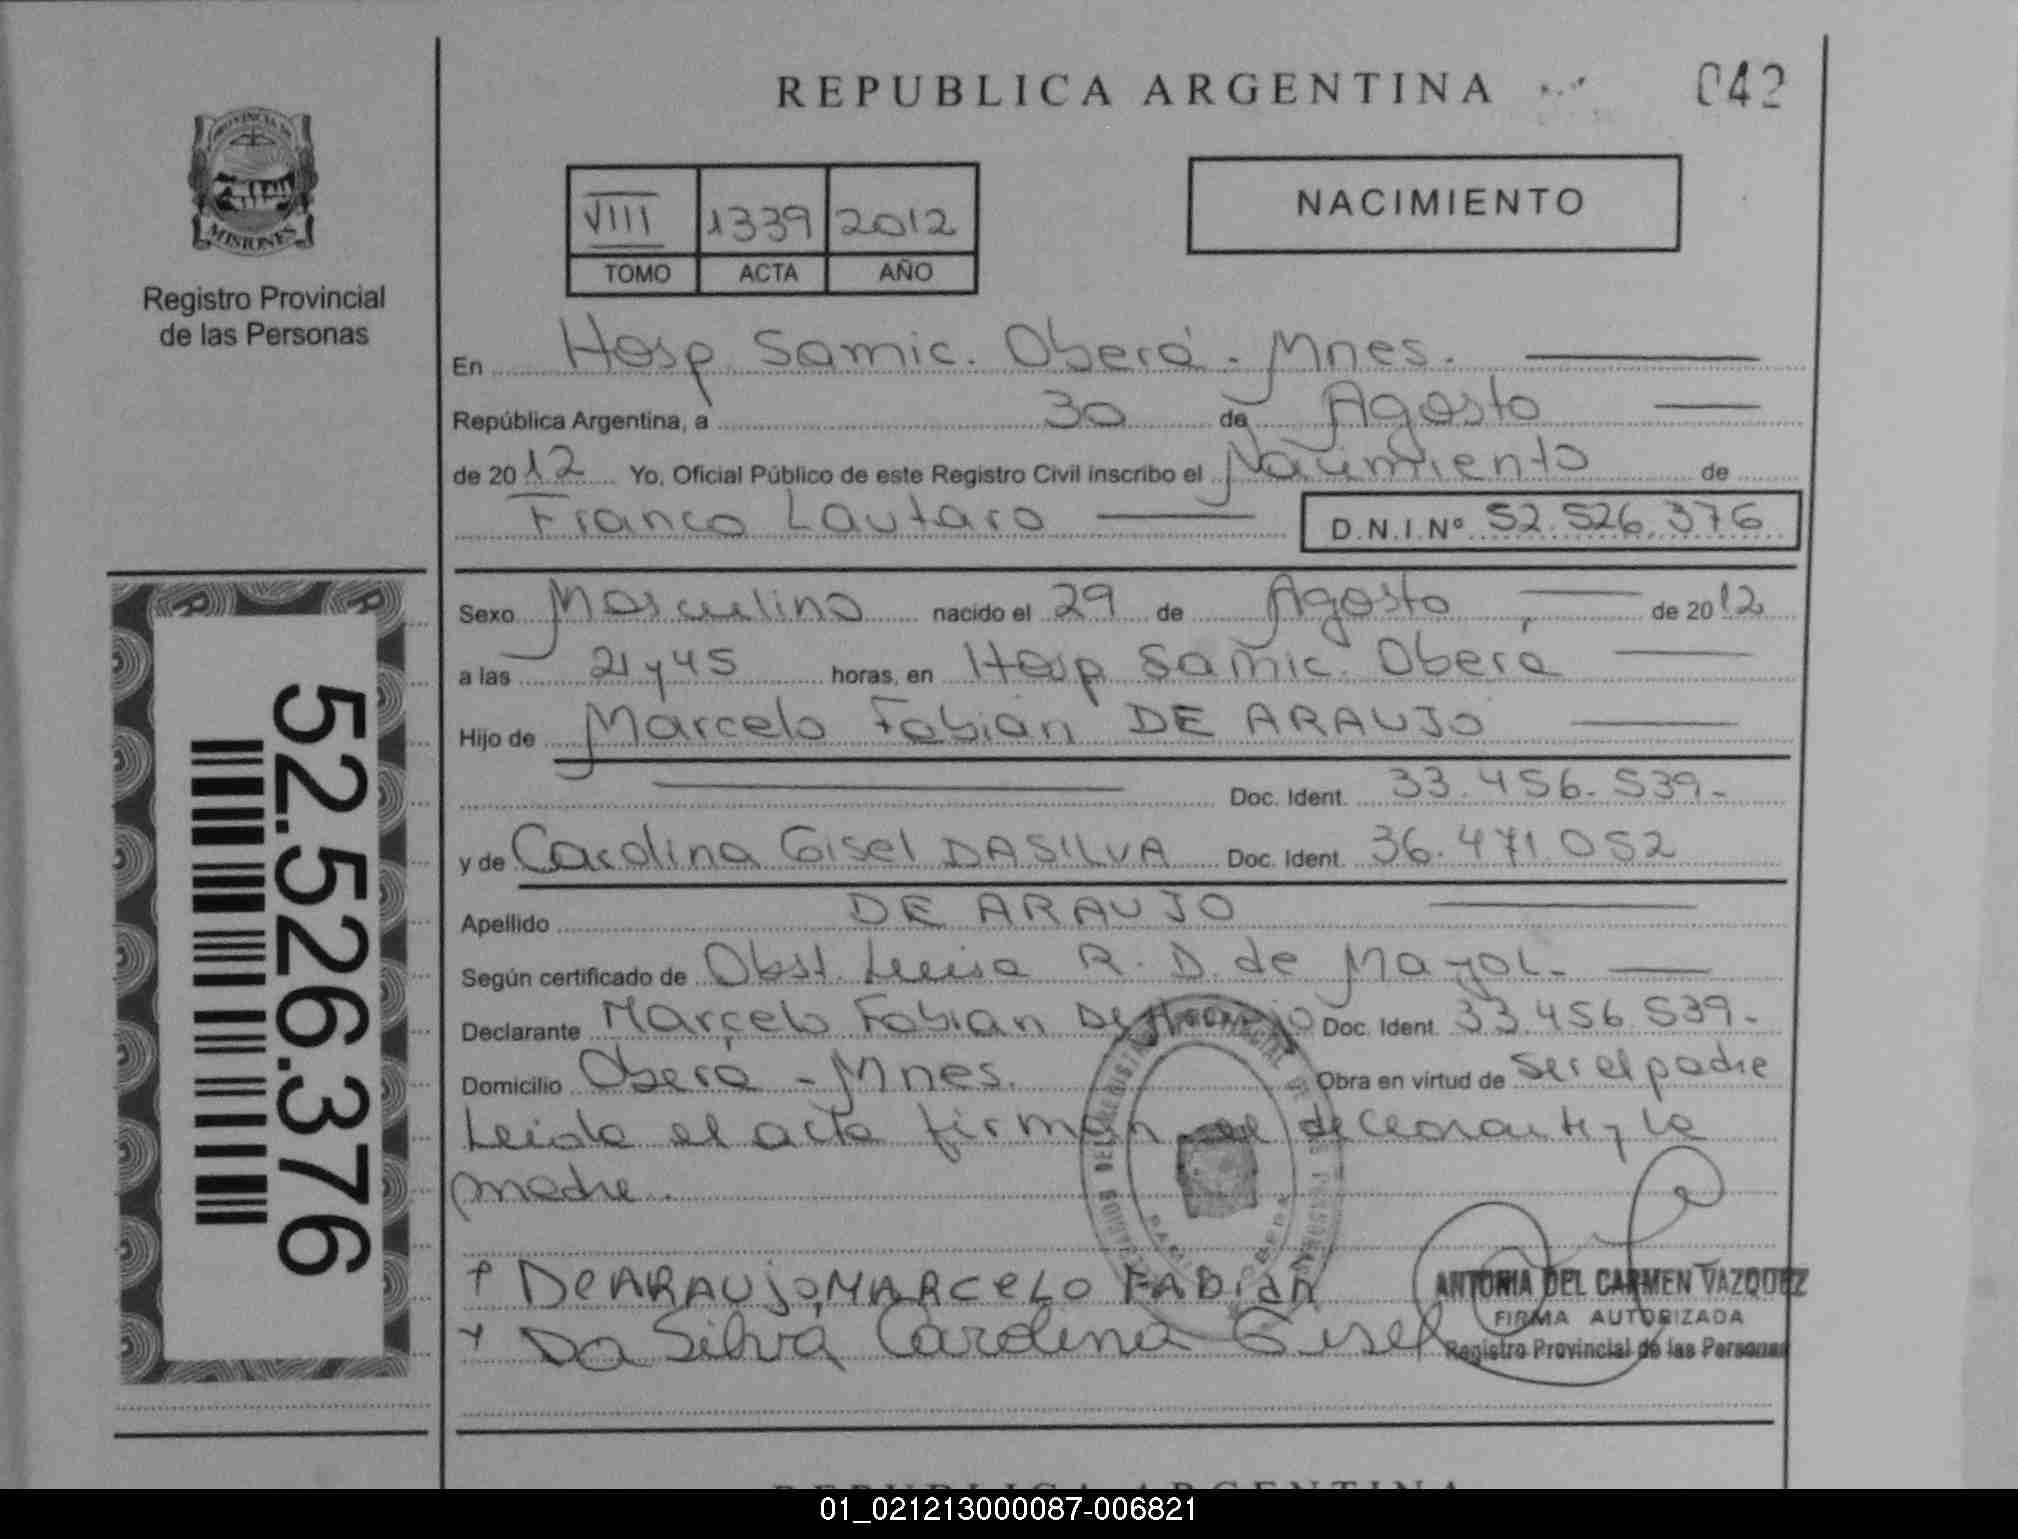 REPUBLICA ARGENTINA
042
PROVINCIA DE
MISIONES
Registro Provincial
de las Personas
VIII 1339 2012
TOMO ACTA AÑO
NACIMIENTO
En Hosp Samic. Oberá - Mnes.
República Argentina, a 30 de Agosto
de 2012 Yo, Oficial Público de este Registro Civil inscribo el Nacimiento de
Franco Lautaro D.N.I.Nº 52.526.376
Sexo Masculino nacido el 29 de Agosto de 2012
a las 21 y 45 horas, en Hosp Samic. Oberá
Hijo de Marcelo Fabian DE ARAUJO
Doc. Ident. 33.456.539-
y de Carolina Gisel DA SILVA Doc. Ident. 36.471.052
Apellido DE ARAUJO
Según certificado de Obst. Luisa R. D. de Mayol-
Declarante Marcelo Fabian De Araujo Doc. Ident. 33.456.539-
Domicilio Oberá - Mnes. Obra en virtud de ser el padre
Leida el acta firman el declarante y la
madre.
De ARAUJO, MARCELO FABIAN
Da Silva Carolina Gisel
ANTONIA DEL CARMEN VAZQUEZ
FIRMA AUTORIZADA
Registro Provincial de las Personas
52.526.376
REPUBLICA ARGENTINA
01_021213000087-006821